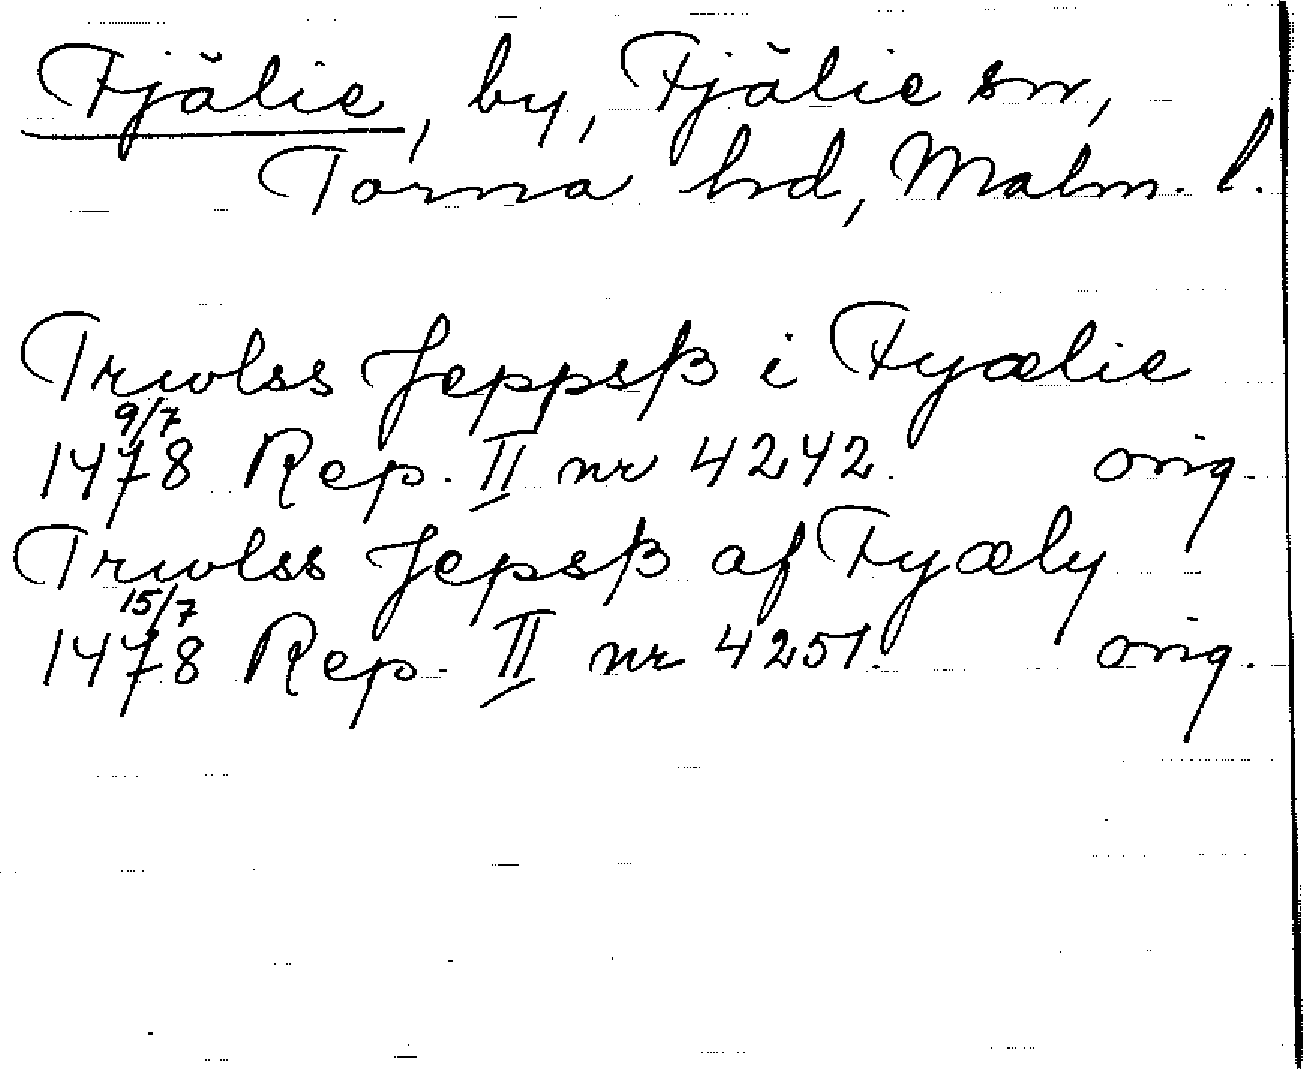 Fjälie, by, Fjälie sn,
Torna hd, Malm. l.
Truvlss Jeppsß i Fyælie
9/7
1478 Rep. II nr 4242. orig.
Truvlss Jepsß af Fyæly
15/7
1478 Rep. II nr 4251. orig.